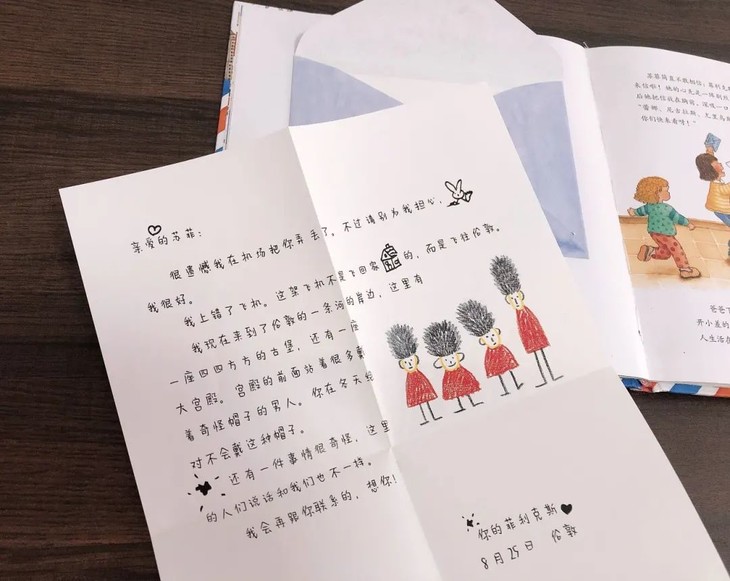 亲爱的苏菲：
很遗憾我在机场把你弄丢了，不过请别为我担心，
我很好。
我上错了飞机。这架飞机不是飞回家的，而是飞往伦敦。
我现在来到了伦敦的一条河的岸边，这里有
一座四四方方的古堡，还有一座
大宫殿。宫殿的前面站着很多戴
着奇怪帽子的男人。你在冬天绝
对不会戴这种帽子。
还有一件事情很奇怪，这里
的人们说话和我们也不一样。
我会再跟你联系的，想你！
你的菲利克斯
8月25日 伦敦
苏菲简直不敢相信：菲利克
来信啦！她的心
后她把信放在胸前，深吸一口
“蕾娜、尼古拉斯、尤里乌
你们快来看呀！”
爸爸
开小差的
人生活